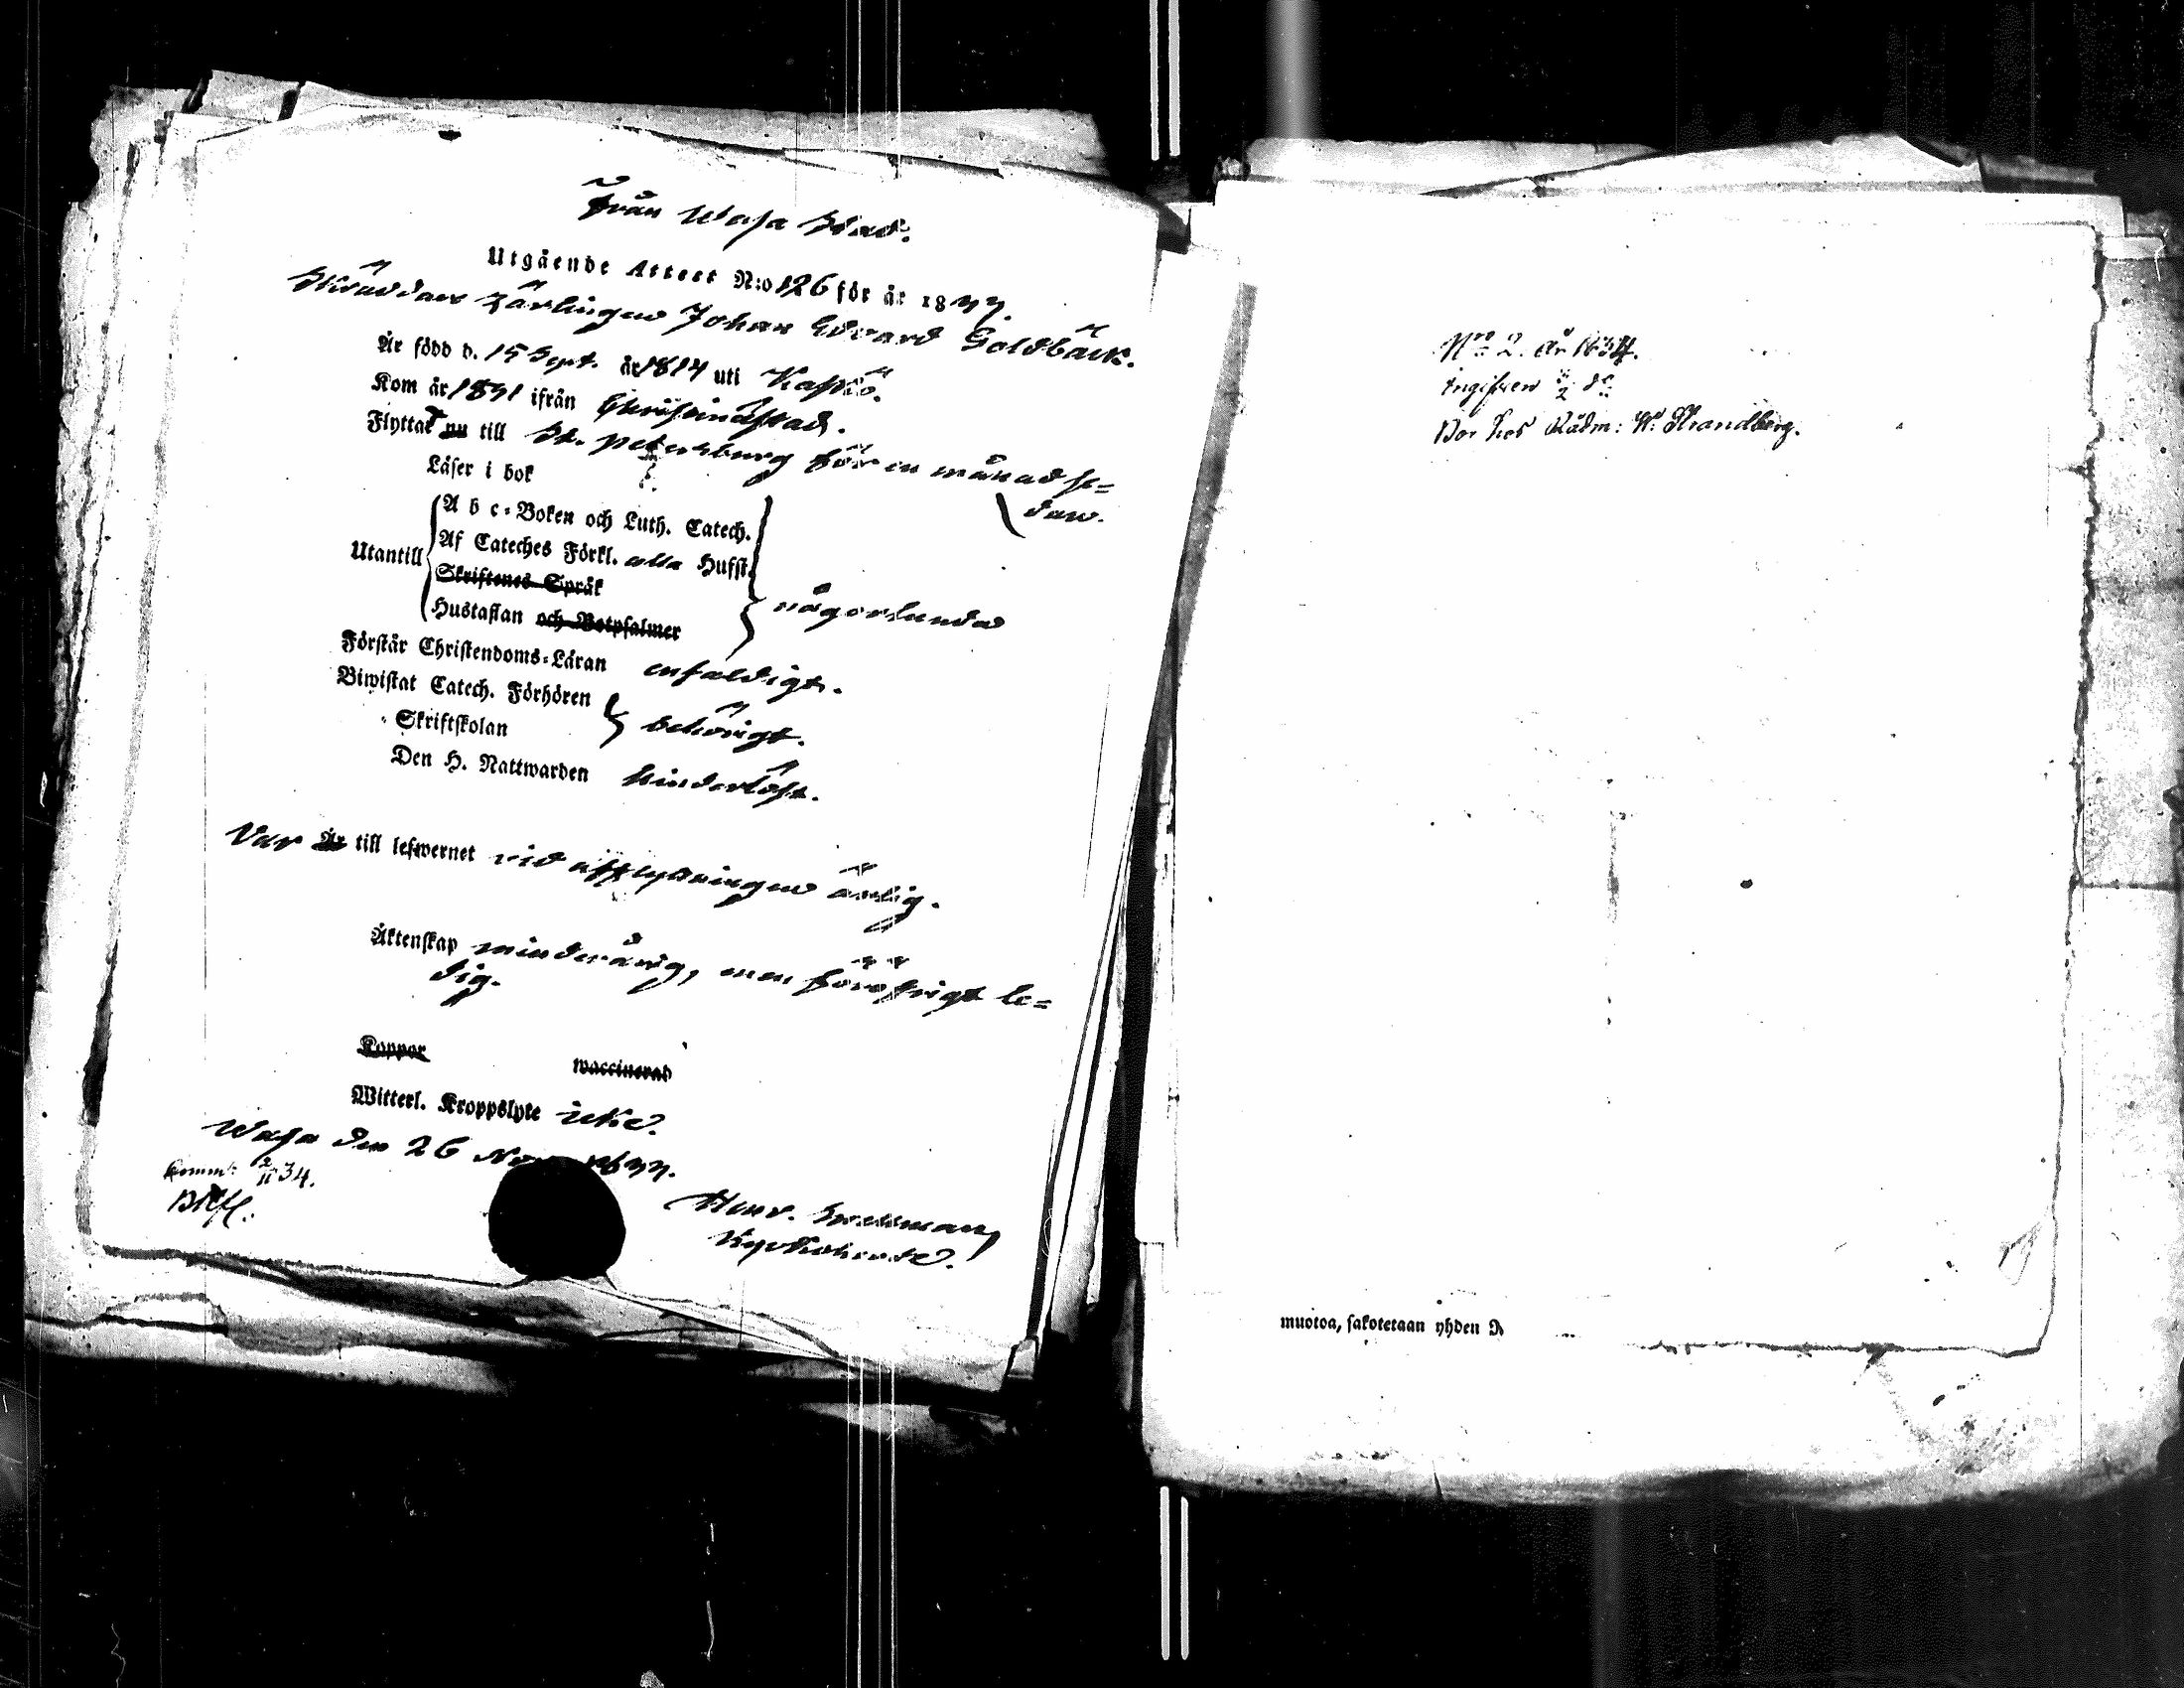 Från Wasa Stad.
Utgående Attest N:o 126 för år 1833.
Skräddare Lärlingen Johan Edvard Goldbäck.
Är född d. 15 Sept. år 1814 uti Kaskö.
Kom år 1831 ifrån Christinæstad.
Flyttat nu till St. Petersburg för en månad se=
dan.
Läser i bok
A b c=Boken och Luth. Catech.
Utantill Af Cateches Förkl. alla Hufst.
Skriftenes Språk
Hustaflan och Botpsalmer
någorlunda
Förstår Christendoms=Läran enfaldigt.
Biwistat Catech. Förhören
Skriftskolan
behörigt.
Den H. Nattwarden hinderlöst.
Var Är till lefwernet vid afflyttningen ärlig.
Äktenskap minderårig, men föröfrigt le=
dig.
Koppor waccinerad
Witterl. Kroppslyte icke.
Wasa den 26 Nov 1833.
34.
Henr.
Kyrkoherde.
N:ro 2. År 1834.
Ingifven
Bor hos Rådm: W: Strandberg.
muotoa, sakotetaan yhden R